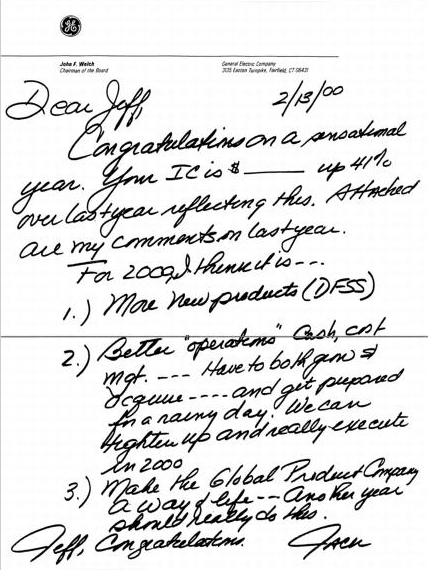 GE
John F. Welch
Chairman of the Board
General Electric Company
3135 Easton Turnpike, Fairfield, CT 06431
2/13/00
Dear Jeff,
Congratulations on a sensational
year. Your IC is $ ______ up 41%
over last year reflecting this. Attached
are my comments on last year.
For 2000, I think it is ---
1.) More new products (DFSS)
2.) Better "operations" Cash, cost
mgt. --- Have to both grow &
acquire ---- and get prepared
for a rainy day. We can
tighten up and really execute
in 2000
3.) Make the Global Product Company
a way of life -- Another year
should really do this.
Jeff, Congratulations.
Jack